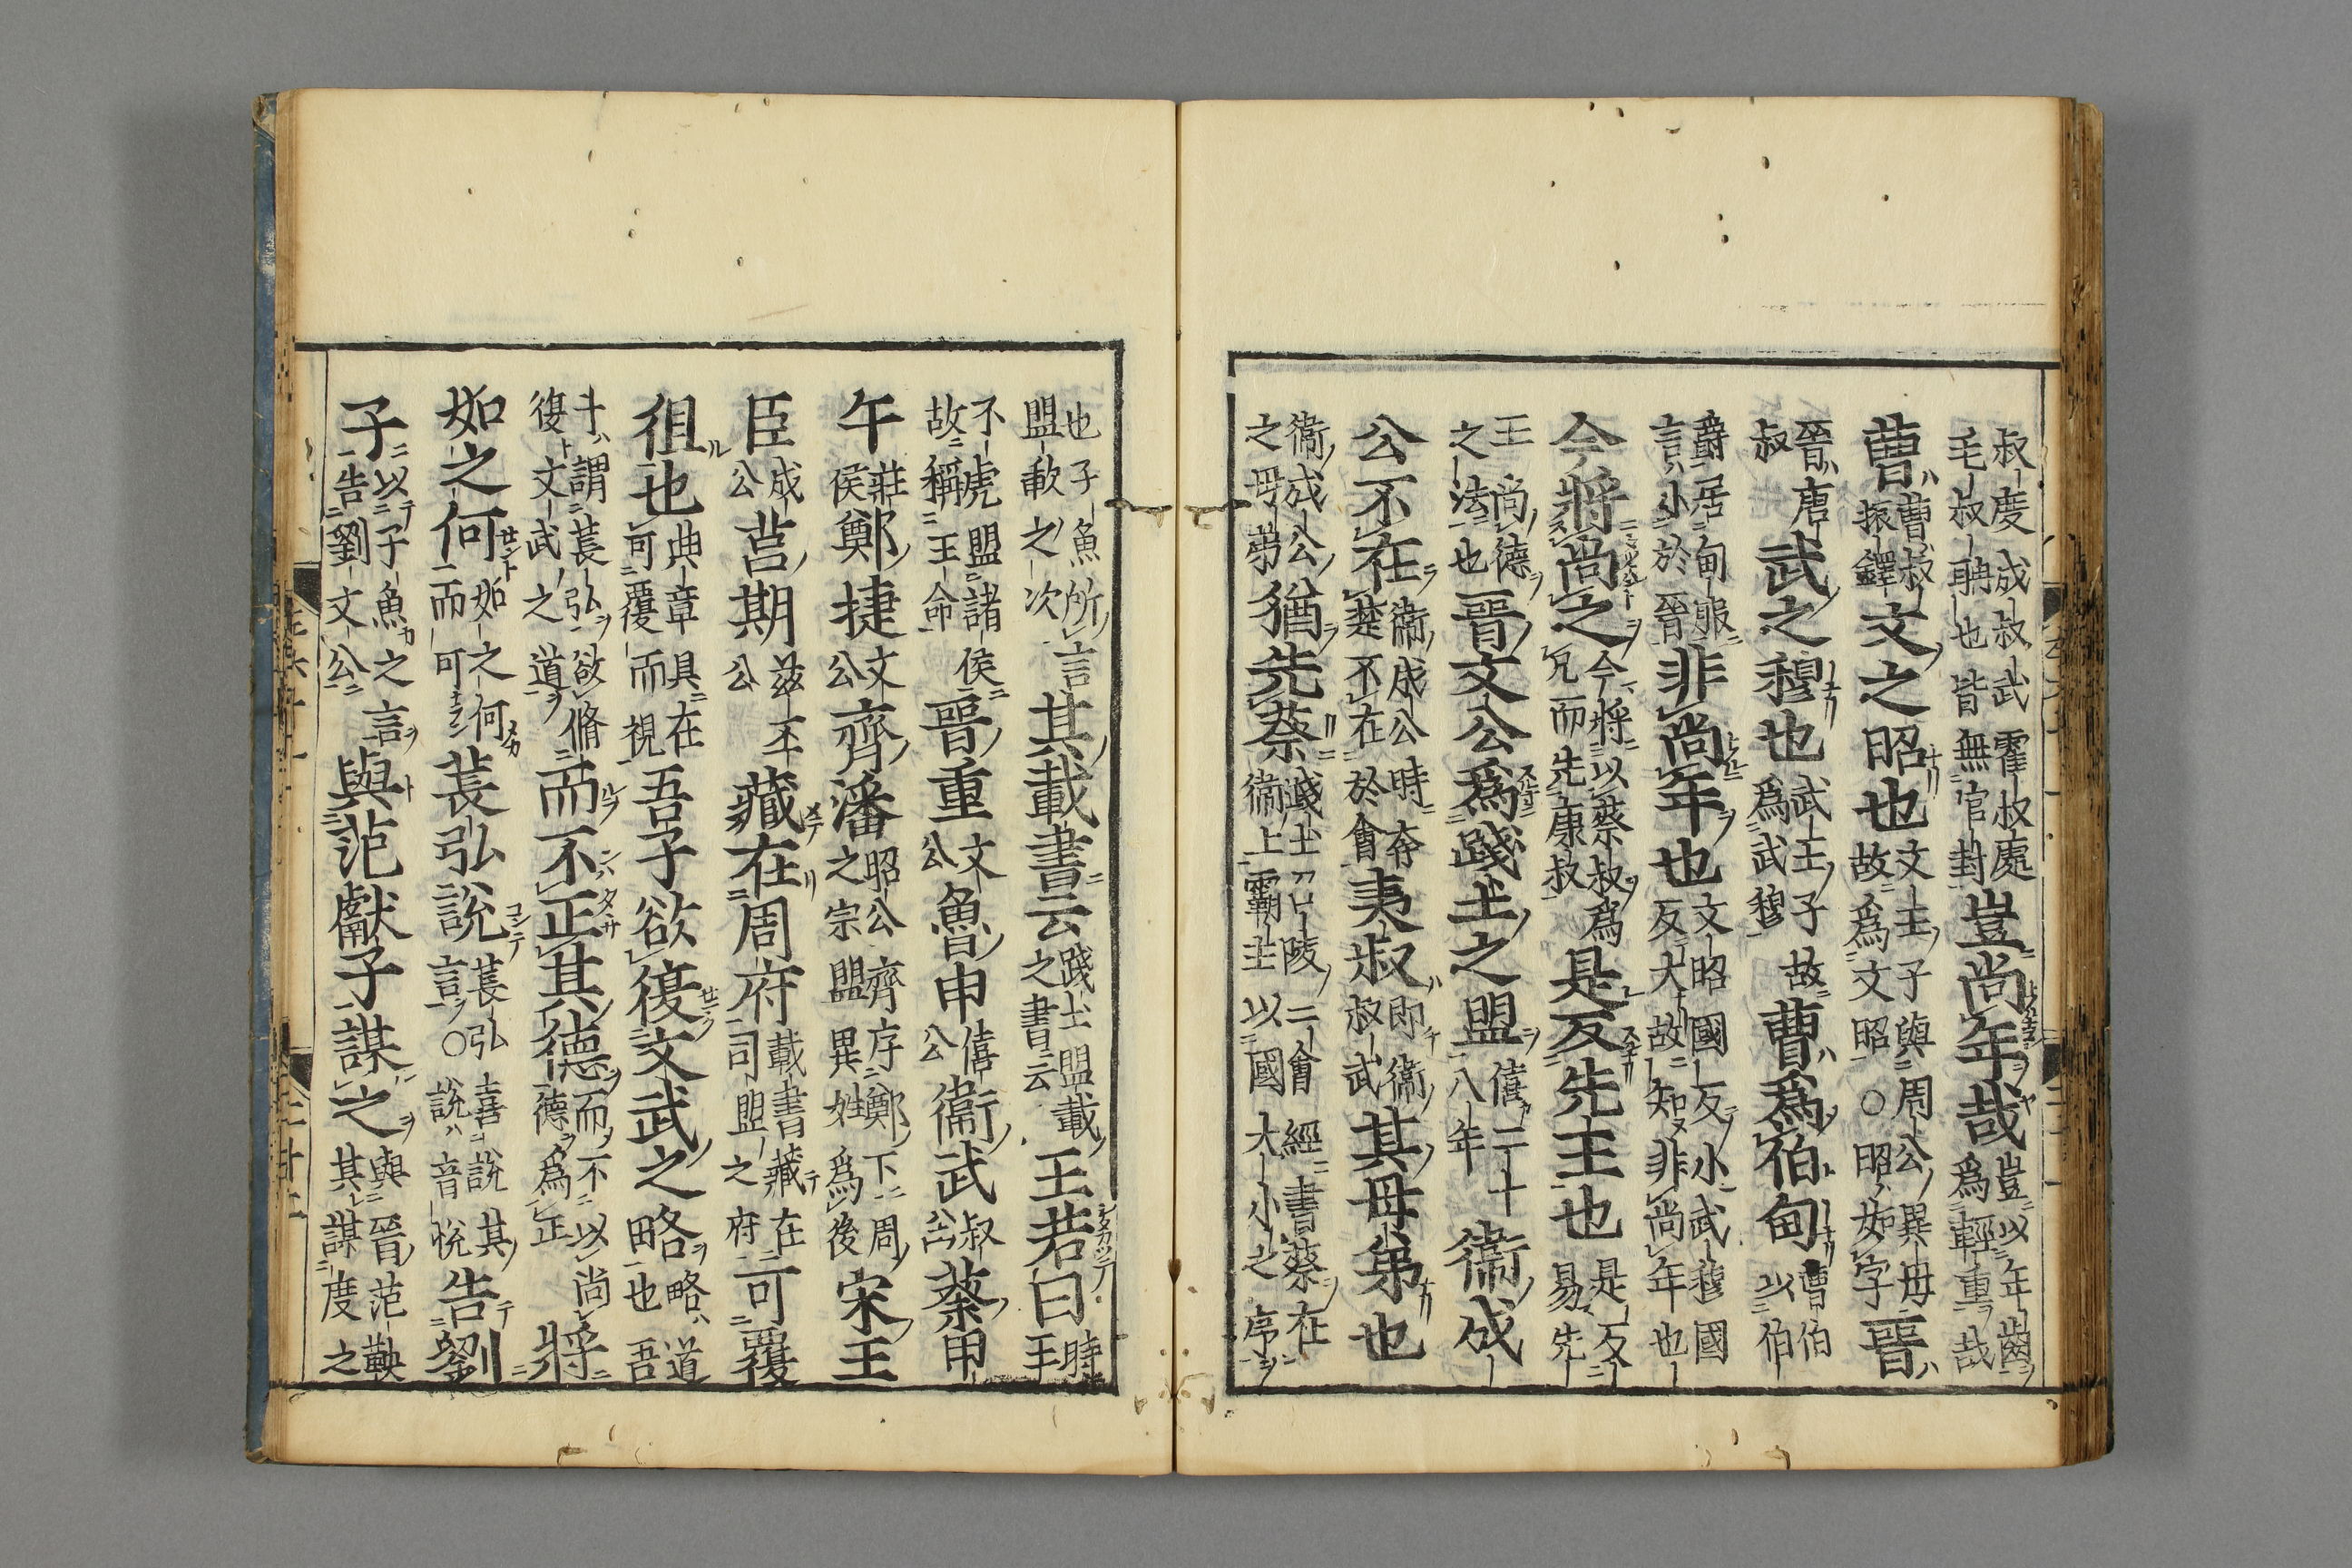 叔慶成叔武霍叔處毛叔聃也皆無官封豈尚年哉豈以年齒爲輕重哉
曹曹叔振鐸文之昭也文王子與周公異母故爲文昭○昭如字晉
晉唐叔武之穆也武王子故爲武穆曹爲伯甸曹伯以伯
爵居甸服言小於晉非尚年也文昭國反小武穆國反大故知非尚年也
今將尚之今將以蔡叔爲兄而先康叔是反先王也是反易先
王尚德之法也晉文公爲踐土之盟僖二十八年衞成
公不在衞成公時奔楚不在於會夷叔即衞叔武其母弟也
衞成公之母弟猶先蔡踐土召陵二會經書蔡在衞上霸主以國大小之序
也子魚所言盟歃之次其載書云踐土盟載之書云王若曰時王
不虎盟諸侯故稱王命晉重文公魯申僖公衞武叔武蔡甲
午莊侯鄭捷文公齊潘昭公宋王齊序鄭下周之宗盟異姓爲後
臣成公莒期茲丕公藏在周府載書藏在司盟之府可覆
徂也典章具在可覆而視吾子欲復文武之略略道也吾
子謂萇弘欲脩復文武之道而不正其德而不以尚德爲正將
如之何如之何而可萇弘說萇弘喜說其言○說音悅告劉
子以子魚之言告劉文公與范獻子謀之與晉范鞅其謀度之